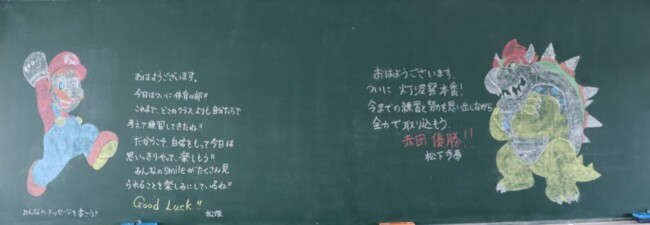 おはようございます。
今日はついに体育の部!!
これまで、どこのクラスよりも自分たちで
考えて練習してきたね!!
だからこそ、自信をもって今日は
思いっきりやって、楽しもう!!
みんなのsmileがたくさん見
られることを楽しみにしているね!!
Good Luck!!
みんなへメッセージを書こう!
おはようございます
ついに 本番!
今までの練習と努力を思い出しながら
全力で取り込もう
赤団 優勝!!
松下